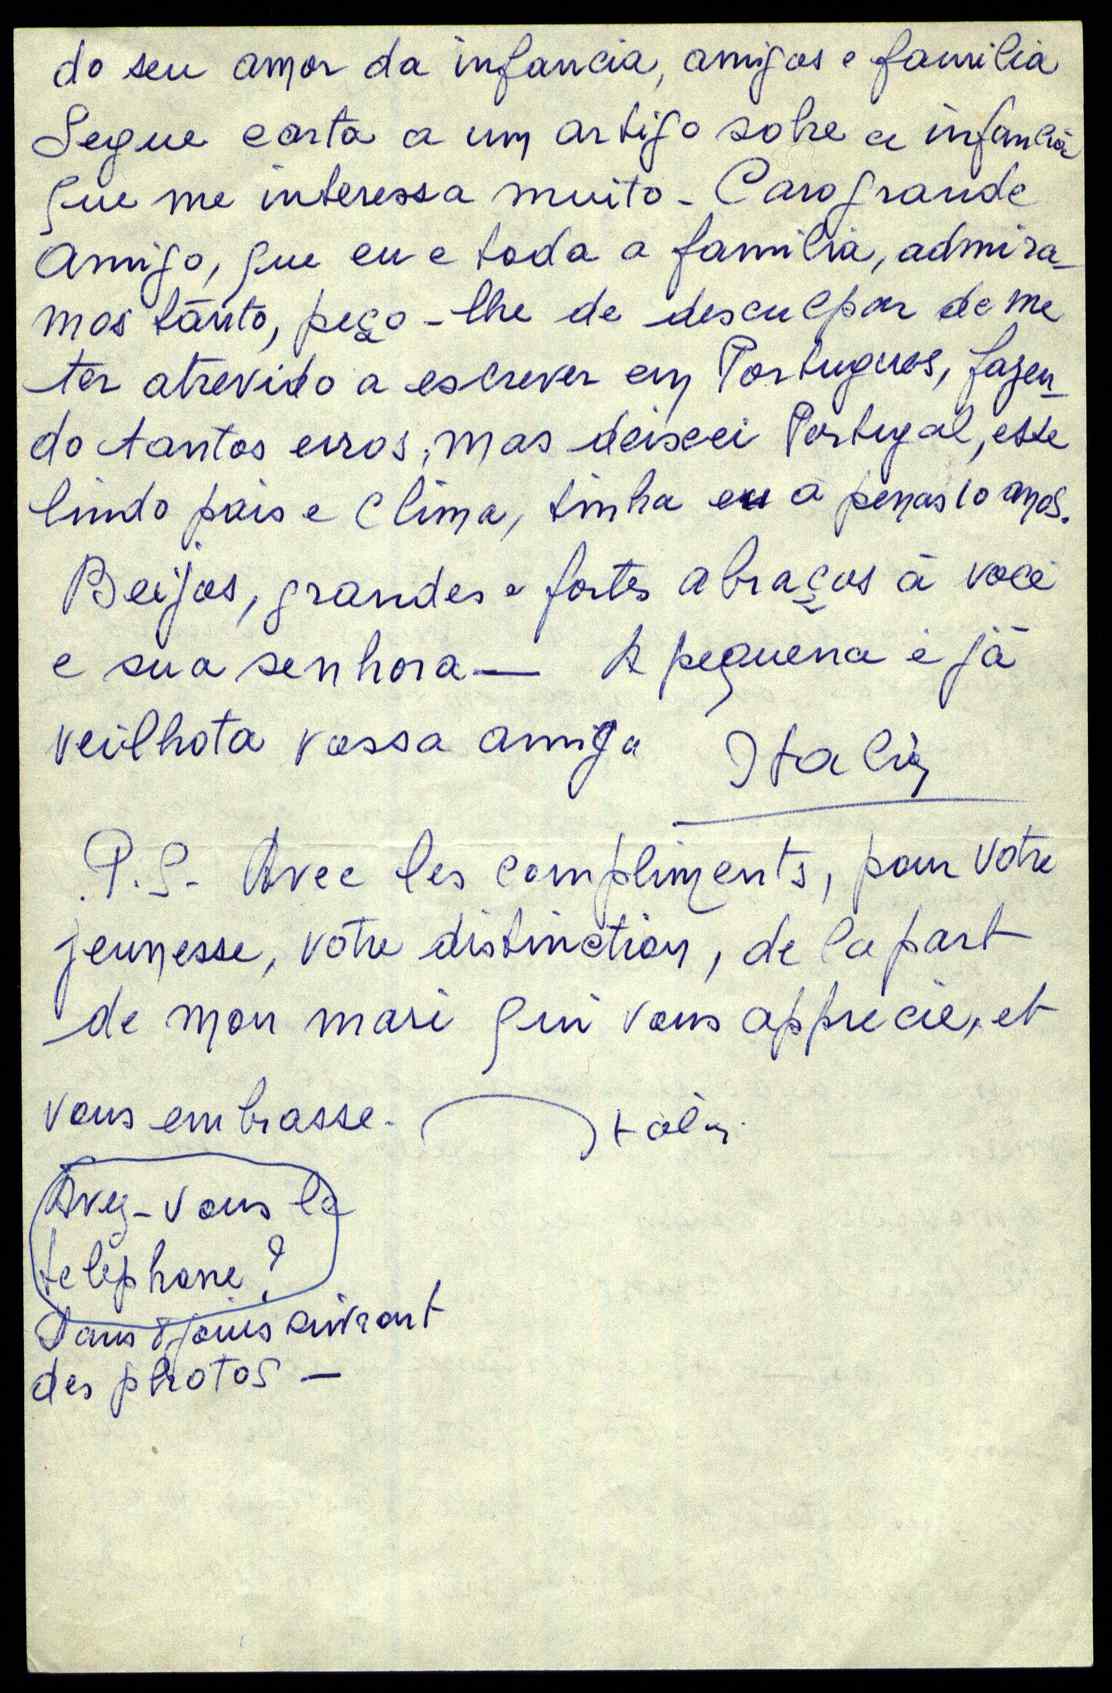 do seu amor da infancia, amigos e familia
Segue carta a um artigo sobre a infancia
que me interessa muito - Caro grande
Amigo, que eu e toda a familia, admira-
mos tãnto, peço-lhe de desculpar de me
ter atrevido a escrever em Portugues, fazen-
do tantos erros, mas deixei Portugal, este
lindo pais e clima, tinha eu a penas 10 anos.
Beijos, grandes e fortes abraços à você
e sua senhora — A pequena e já
veilhota vossa amiga Italia
P.S- Avec les compliments, pour votre
jeunesse, votre distinction, de la part
de mon mari qui vous apprecie, et
vous embrasse.
Avez-vous le
telephone?
Dans 8 jours suivront
des photos —